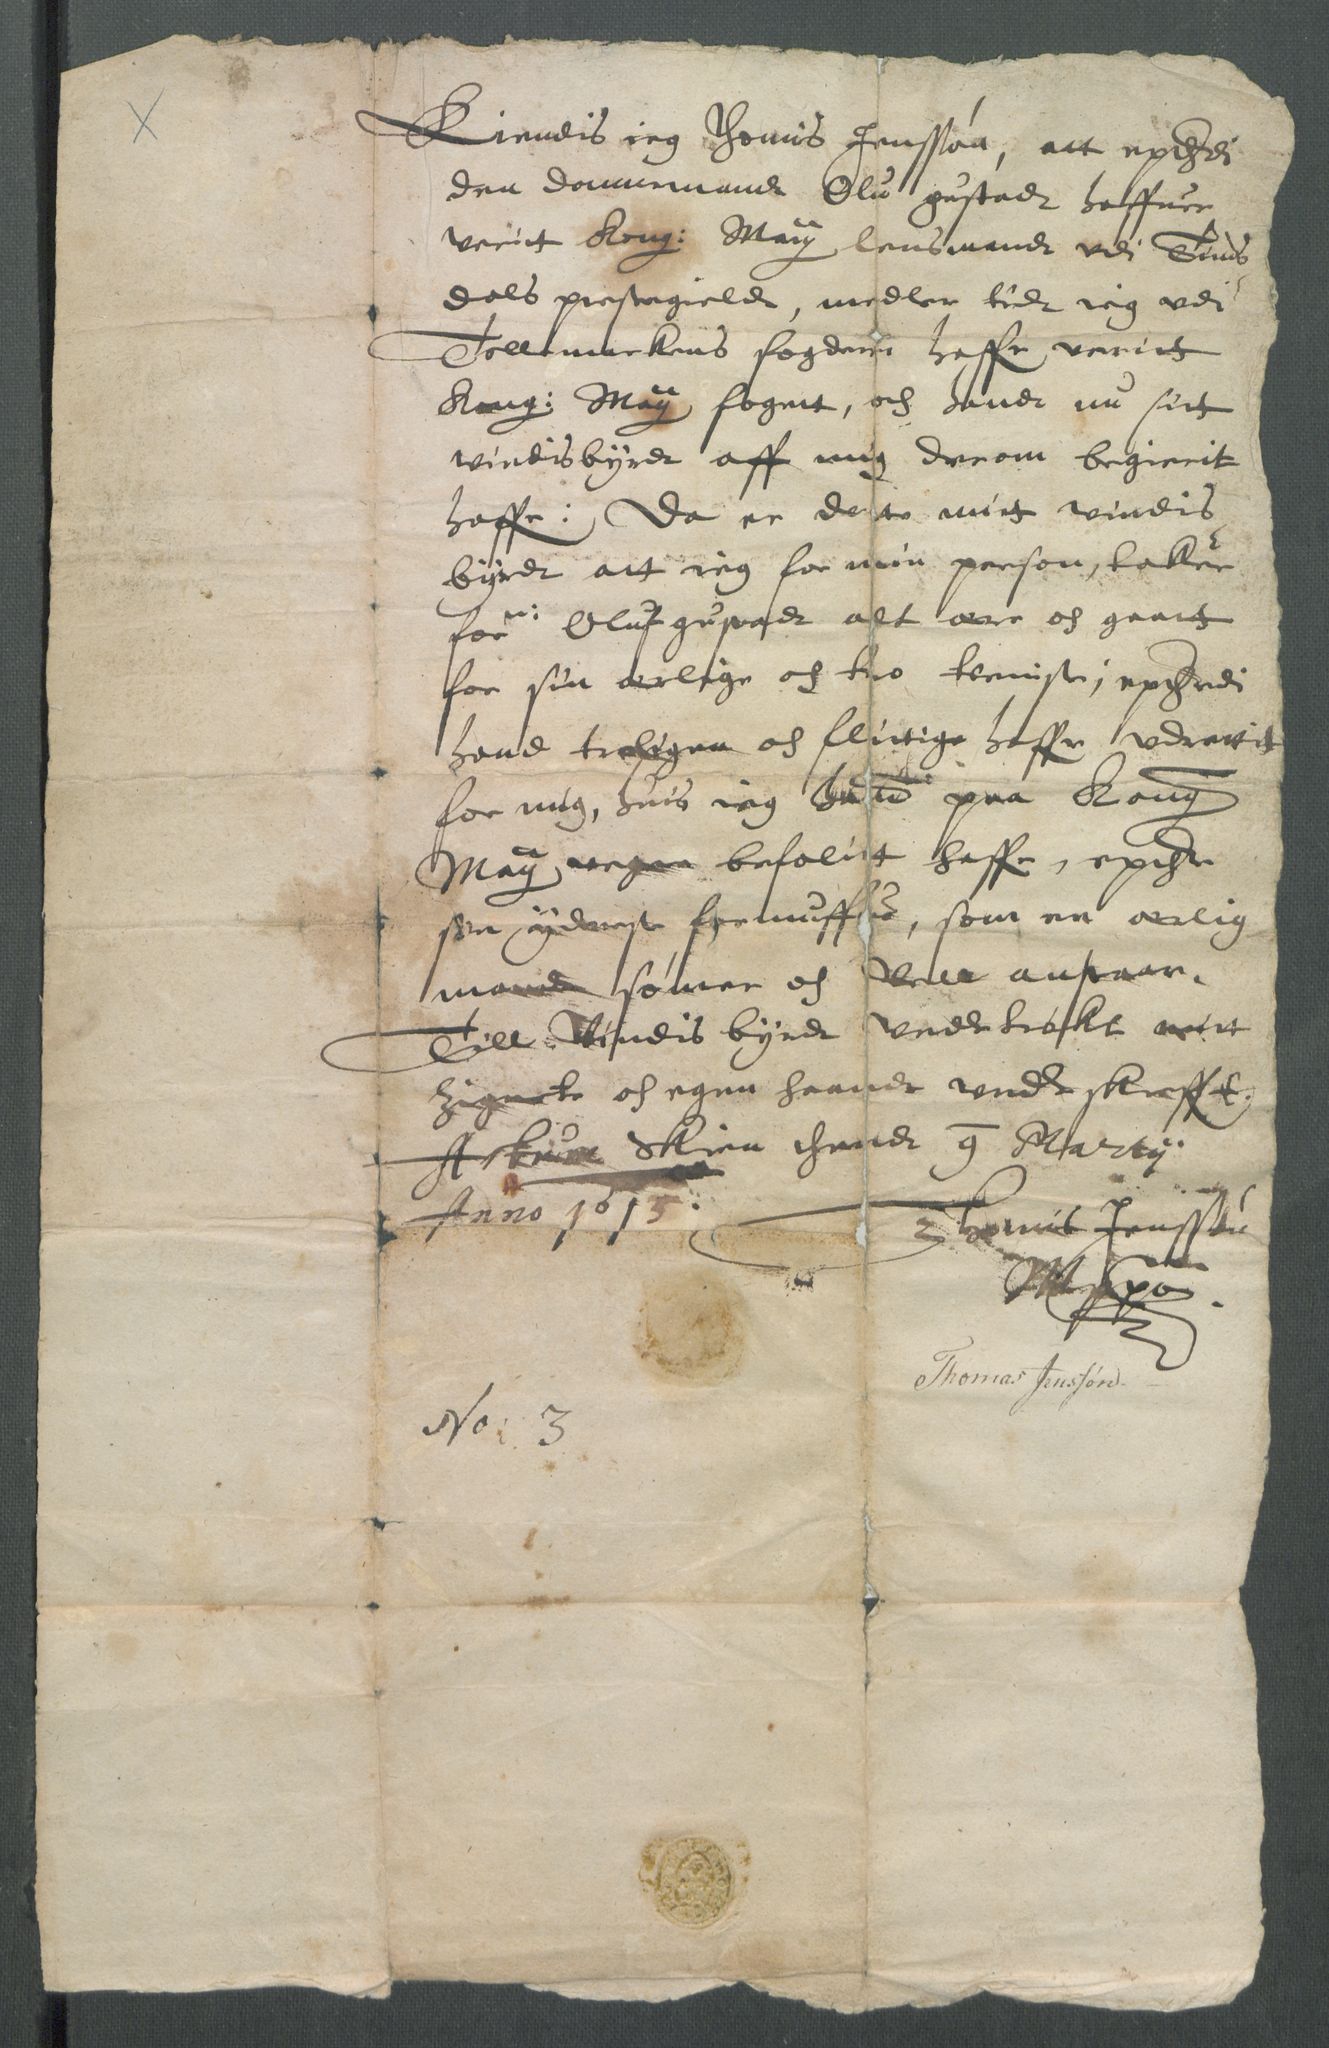 Kiendis ieg Thomis Jenssøn, att epther di
den dannemandt Oluf gustadt haffuer
verit Kong: Maÿ lensmandt vdi Tinds
dals prestegieldt, medler tidt ieg vdi
Tellemarkens fogderi haffr verit
Kong: Maÿ foget, och handt nu sit
vindisbÿrdt aff mig derom begierit
haffr: Da er dette mitt vindis
bÿrdt att ieg for min person, takker
for.n: Oluf gustadt alt ære och gaatt
for sin ærlige och tro tieniste, epther di
hand troligen och flittige haffr vdrettit
for mig, huis ieg hannom paa Kong
Maÿ vegne befalitt haffr, epther
sin ÿderste formuffue, som en ærlig
mand sømer och vell anstaar.
Till Vindis bÿrdt vndertrøkt mitt
zignete och egen haandt vnderskrefft.
Actum Skien thend 9 Martÿ
Anno 1615:
Thomis Jenssøn
M pp
Thomas Jenssøn
No: 3